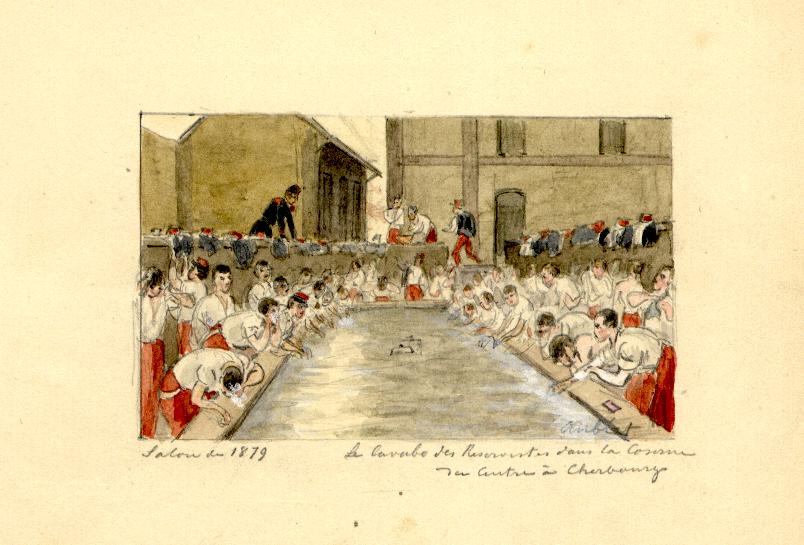 Aublet
Salon de 1879
Le Lavabo des Reservistes dans la Caserne
du Centre à Cherbourg